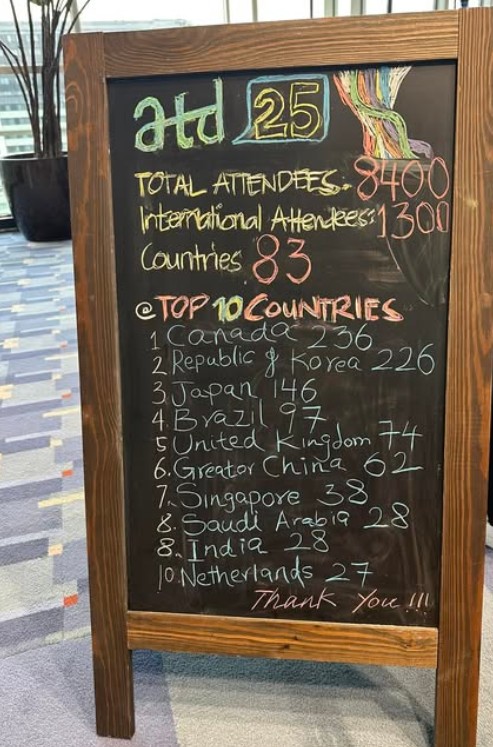 atd 25
TOTAL ATTENDEES: 8400
International Attendees: 1300
Countries 83
@ TOP 10 COUNTRIES
1 Canada 236
2 Republic of Korea 226
3. Japan 146
4. Brazil 97
5 United Kingdom 74
6. Greator China 62
7. Singapore 38
8. Saudi Arabia 28
8. India 28
10. Netherlands 27
Thank You !!!